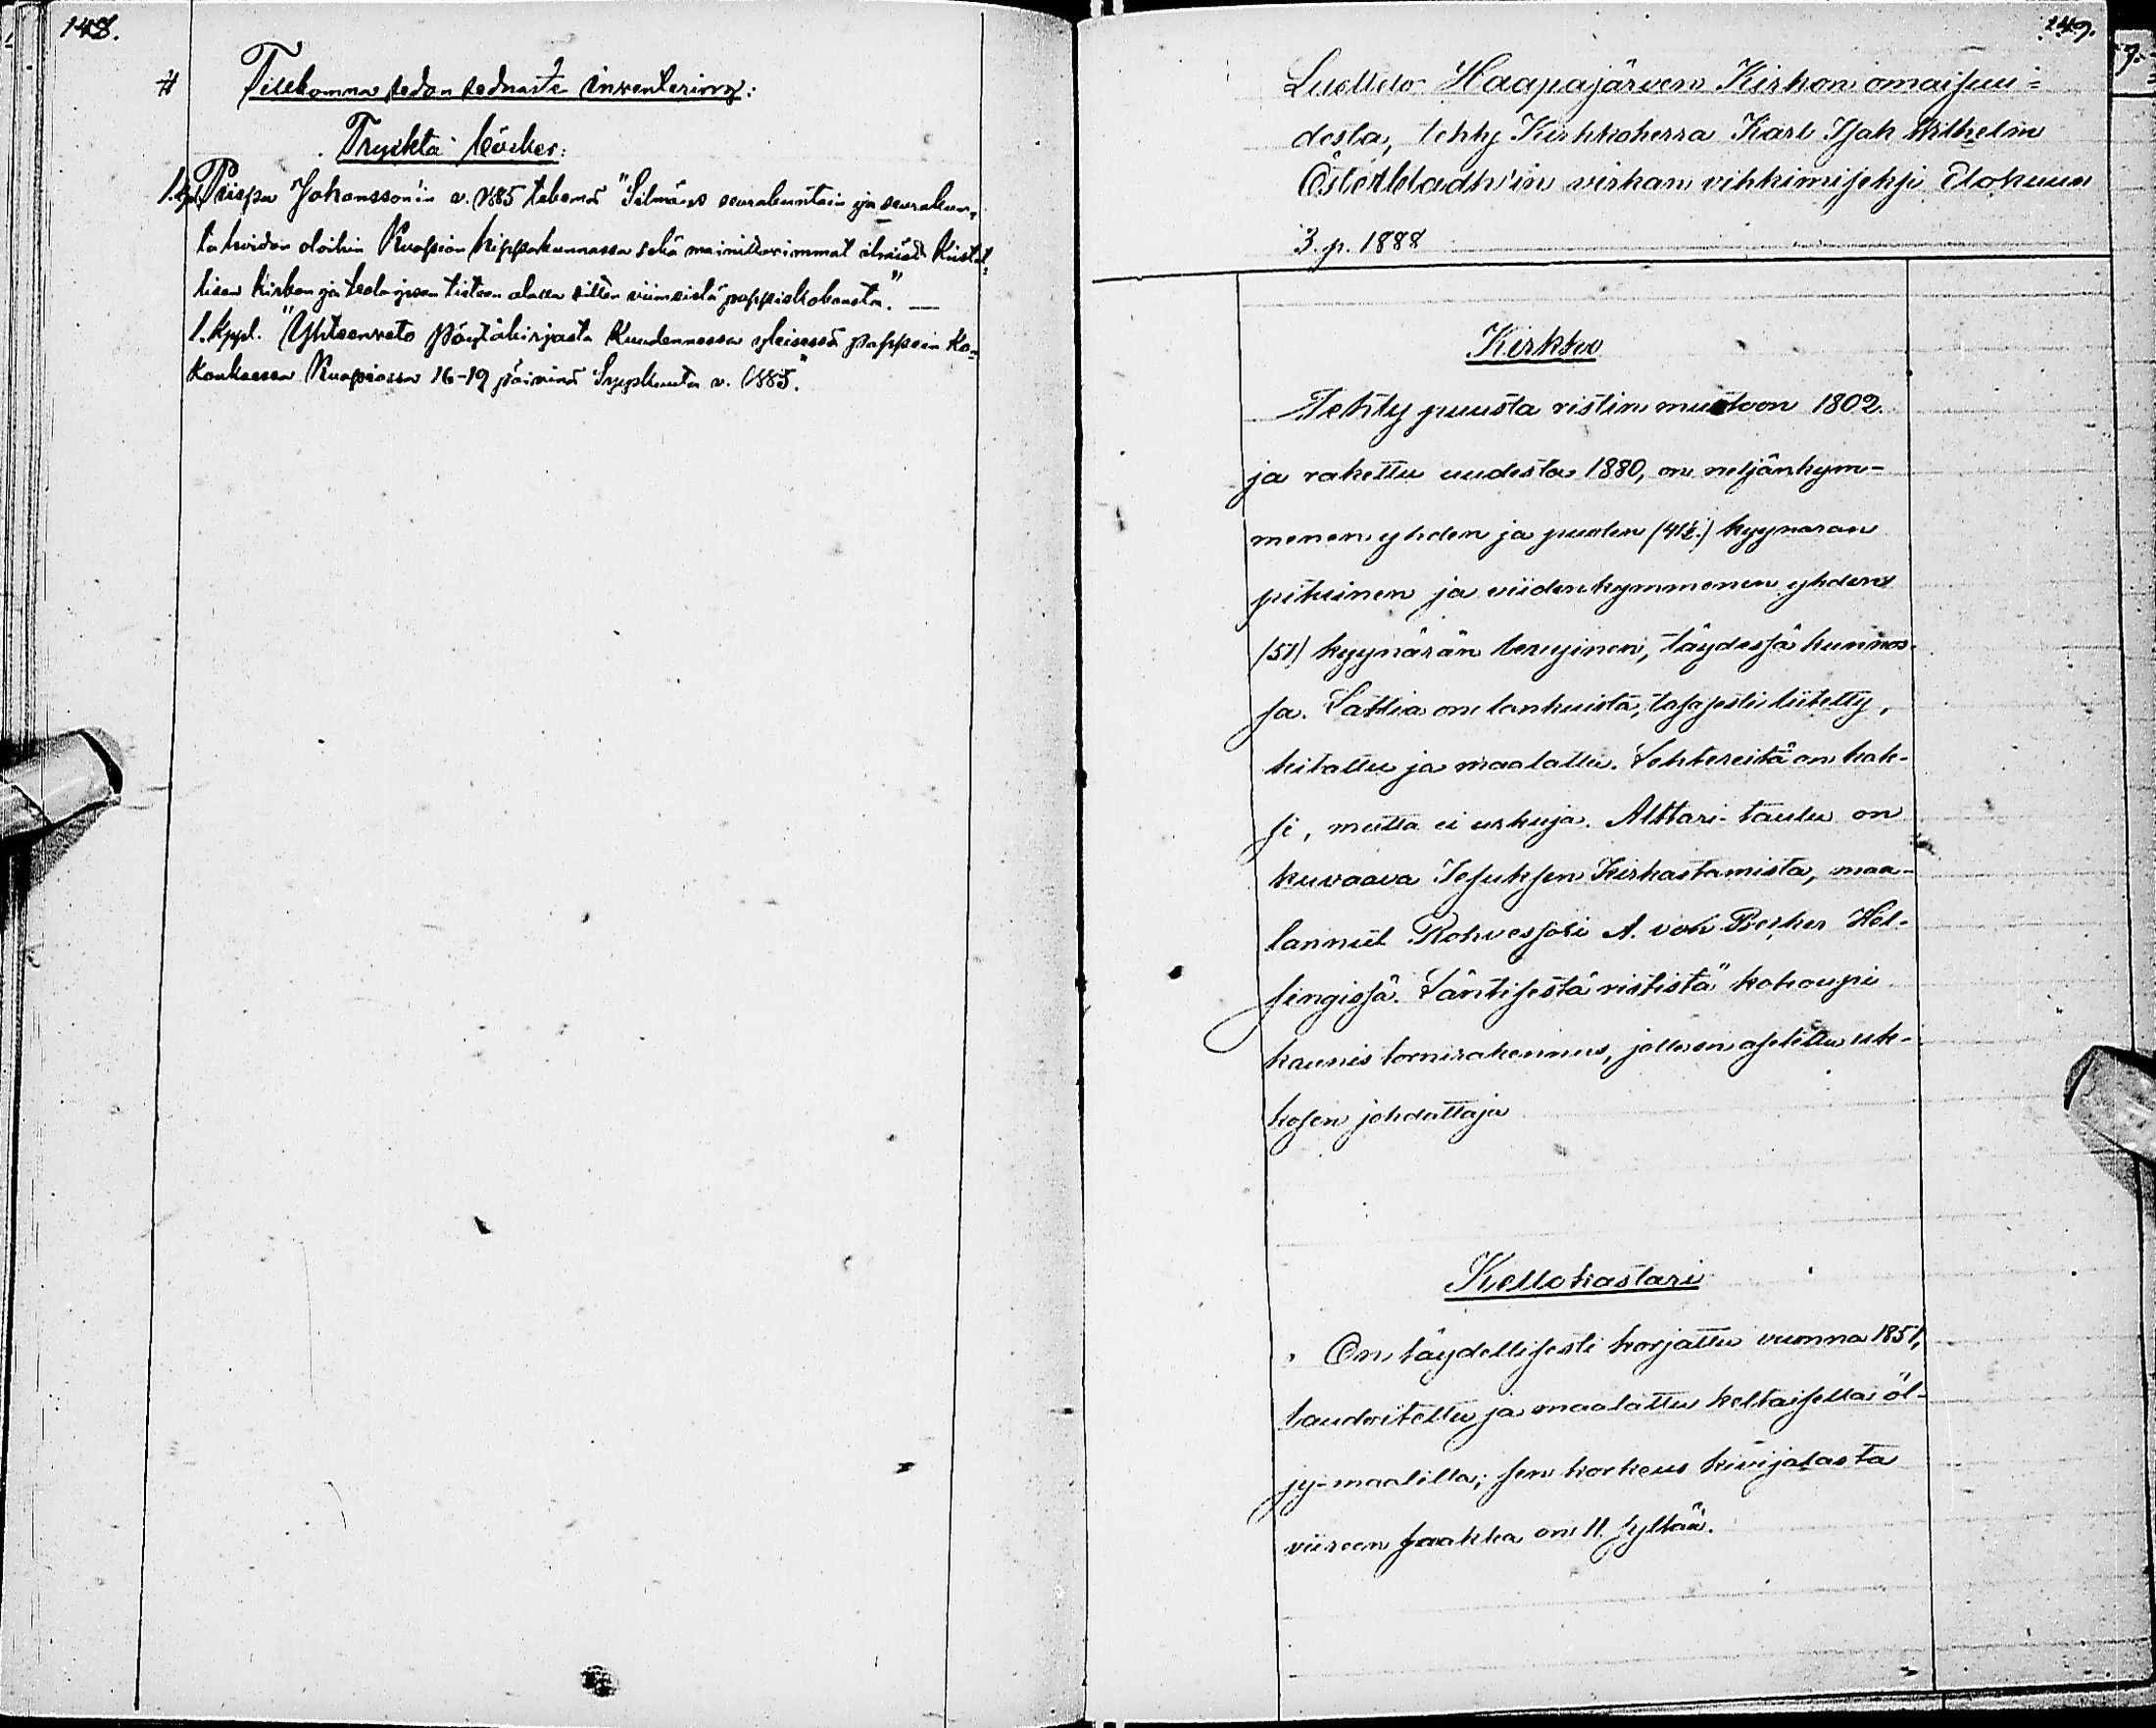 148.
# Tillkomna sedan sednaste inventering:
Tryckta böcker:
1. kpl. Piispa Johansson'in v. 1885 tekemä "Silmäys seurakuntain ja seurakun-
ta hoidon oloihin Kuopion hippakunnassa sekä mainittavimmat ilmiöt Kristil-
lisen kirkon ja teologisen tieteen alalla sitten viimeistä pappiskokousta." —
1. kppl. "Yhteenveto Pöytäkirjasta Kuudennessa yleisessä pappein Ko-
kouksessa Kuopiossa 16-19 päivinä Syyskuuta v. 1885."
149.
Luettelo Haapajärven Kirkon omaisuu-
desta, tehty Kirkkoherra Karl Isak Wilhelm
Österbladh'in virkan vihkimiseksi Elokuun
3. p. 1888
Kirkko
Tehty puusta ristin muotoon 1802.
ja rakettu uudesta 1880, on neljänkym-
menen yhden ja puolen (41½.) kyynaran
pituinen ja viidenkymmenen yhden
(51) kyynärän levyinen, täydessä kunnos-
sa. Lattia on lankuista, tasasesti liitetty,
kitattu ja maalattu. Lehtereitä on kak-
si, mutta ei urkuja. Alttari-taulu on
kuvaava Jesuksen Kirkastamista, maa-
lannut Rohvessori A. von Becker Hel-
singissä. Läntisestä rististä kohoupi
kaunis tornirakennus, jolle on asetettu uk-
kosen johdattaja
Kellokastari
On täydellisesti korjattu vuonna 1851,
laudoitettu ja maalattu keltaisella öl-
jy-maalilla; sen korkeus kivijalasta
viireen saakka on 11. syltää.